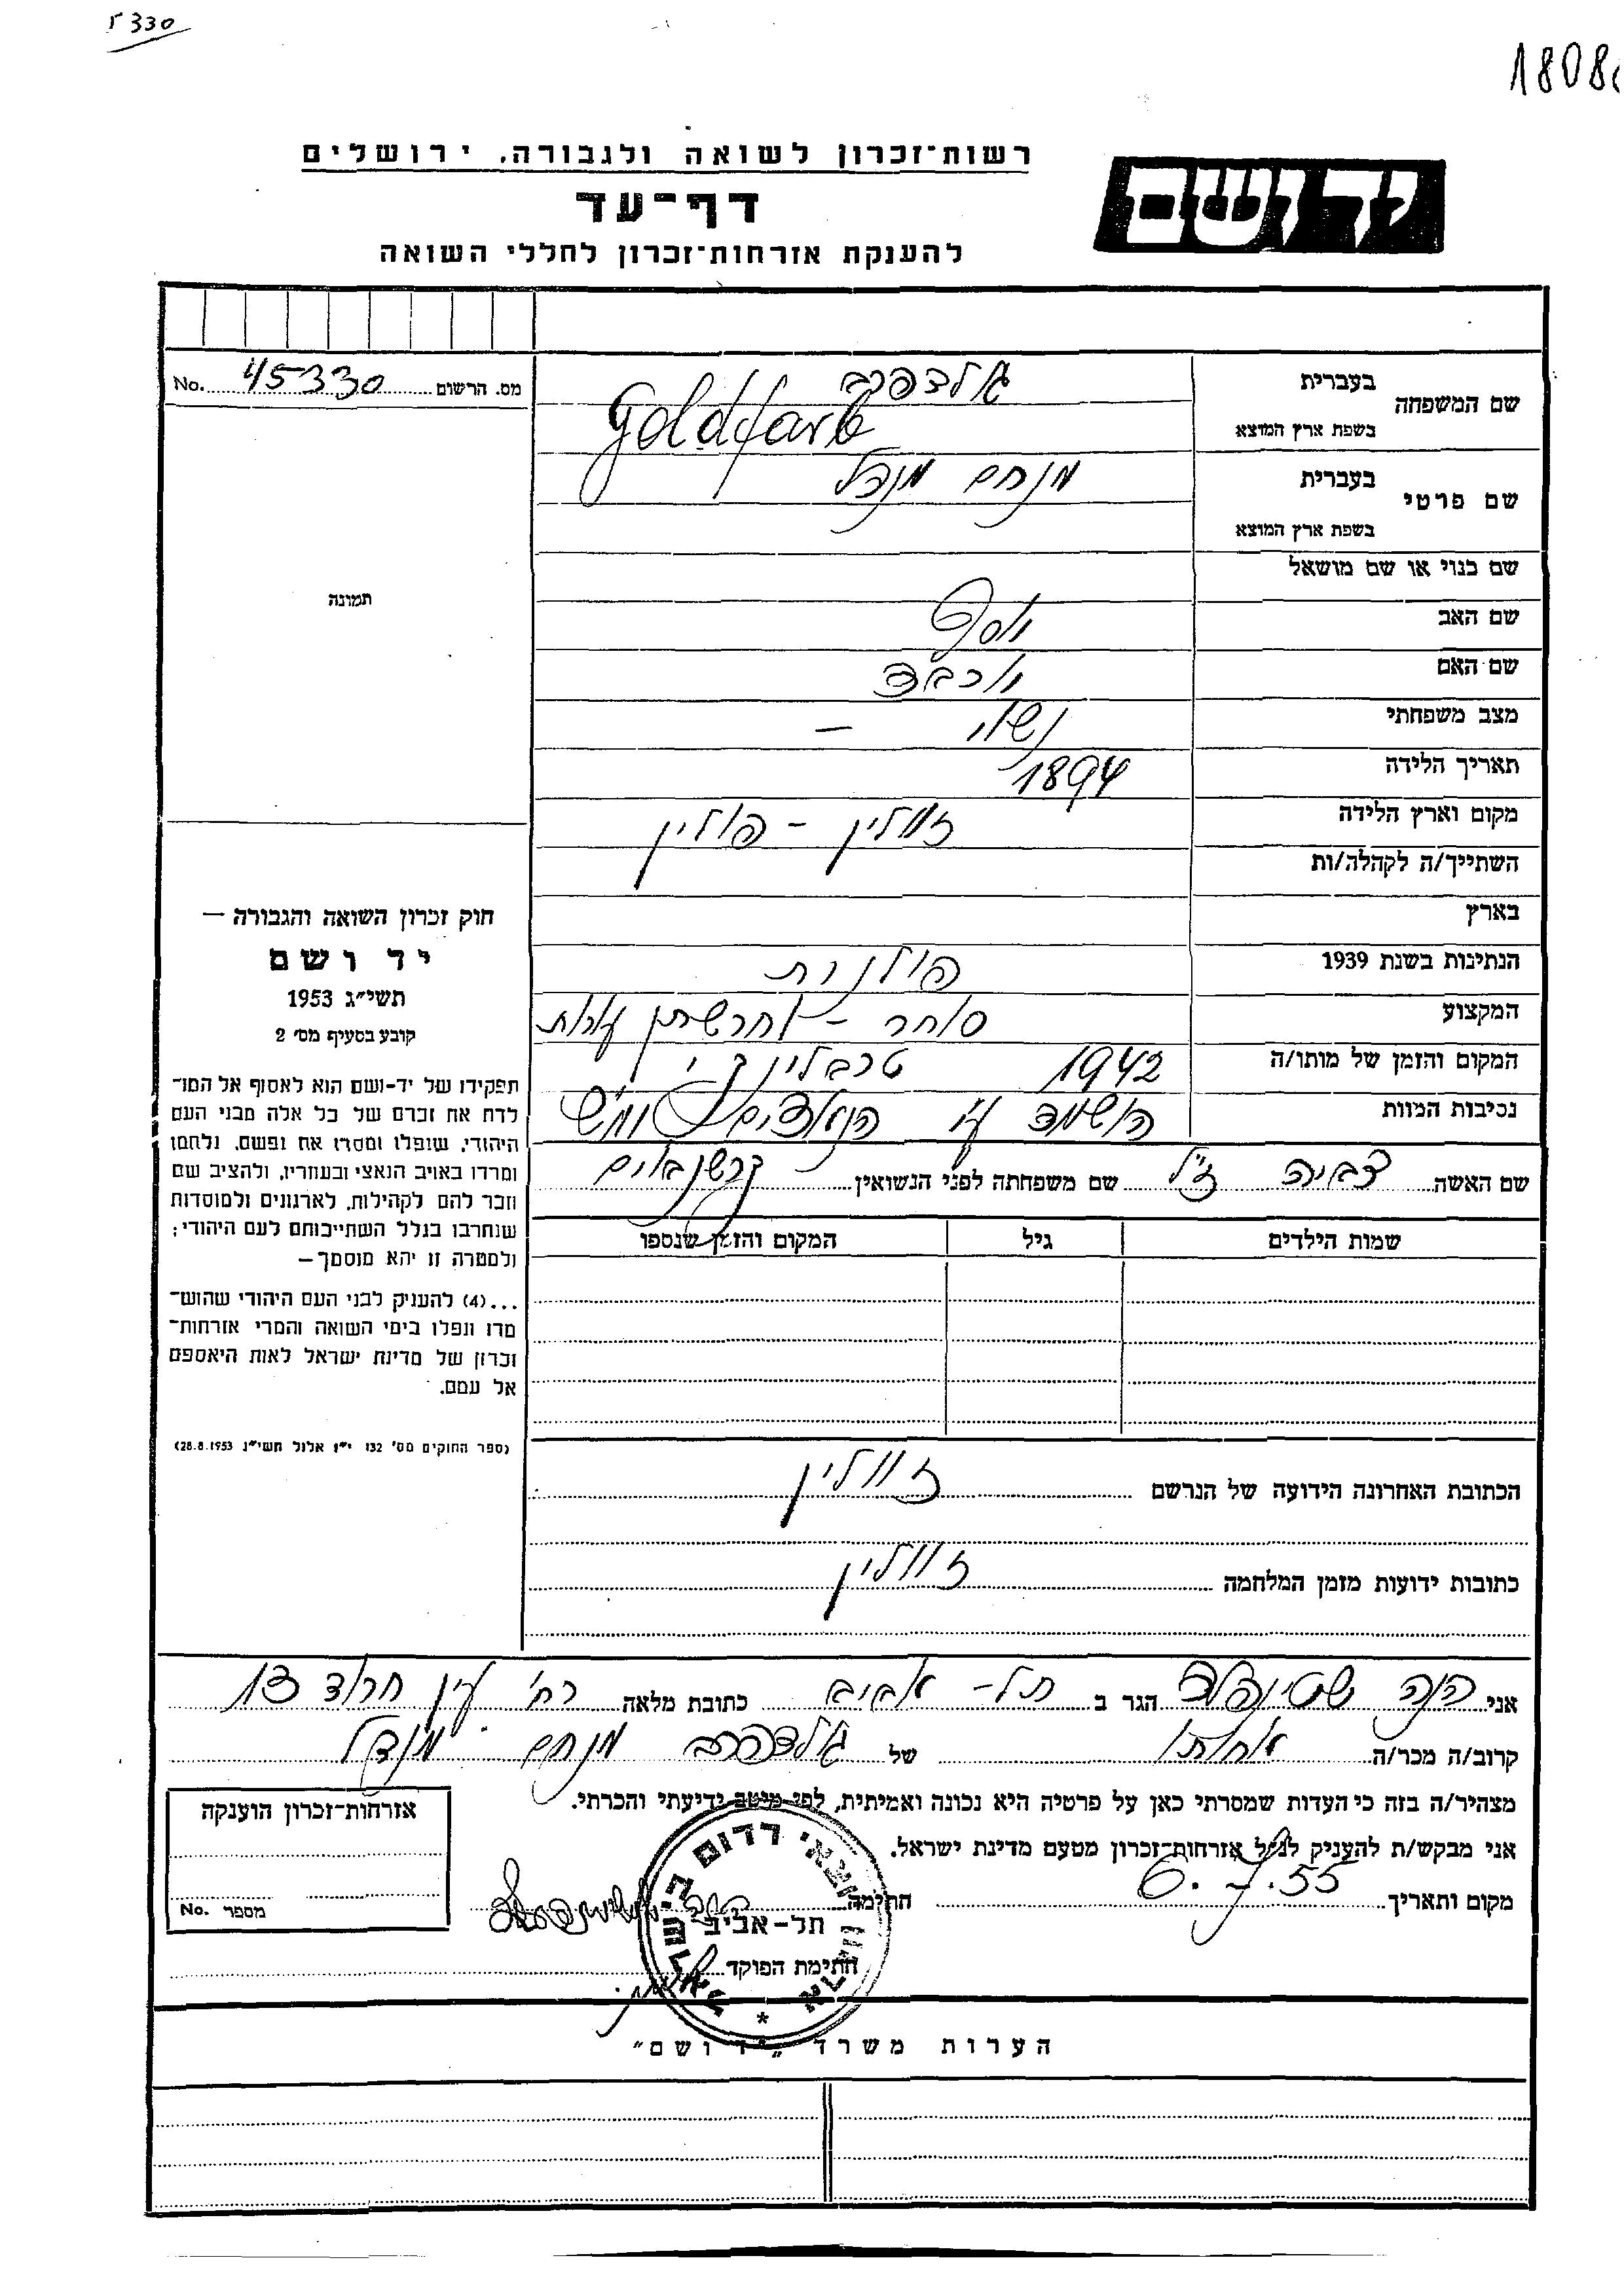 330
1808
רשות־זכרון לשואה ולגבורה, ירושלים
יד ושם
דף־עד
להענקת אזרחות־זכרון לחללי השואה
מס. הרשום 45330 No.
תמונה
שם המשפחה
בעברית גולדפרב
בשפת ארץ המוצא Goldfarb
שם פרטי
בעברית מנחם מנדל
בשפת ארץ המוצא
שם כנוי או שם מושאל
שם האב יוסף
שם האם יוכבד
מצב משפחתי נשוי –
תאריך הלידה 1894
מקום וארץ הלידה זוולין – פולין
השתייך/ה לקהלה/ות
בארץ
הנתינות בשנת 1939 פולנית
המקצוע סוחר – ותרשתן עורות
המקום והזמן של מותו/ה 1942 טרבלינקי
נסיבות המוות הושמד ע"י הנאצים ימ"ש
שם האשה צביה ז"ל שם משפחתה לפני הנשואין קרשנבוים
שמות הילדים גיל המקום והזמן שנספו
חוק זכרון השואה והגבורה —
יד ושם
תשי״ג 1953
קובע בסעיף מס׳ 2
תפקידו של יד-ושם הוא לאסוף אל המו־
לדת את זכרם של כל אלה מבני העם
היהודי, שנפלו ומסרו את נפשם, נלחמו
ומרדו באויב הנאצי ובעוזריו, ולהציב שם
וזכר להם לקהילות, לארגונים ולמוסדות
שנחרבו בגלל השתייכותם לעם היהודי;
ולמטרה זו יהא מוסמך—
...(4) להעניק לבני העם היהודי שהוש־
מדו ונפלו בימי השואה והמרי אזרחות־
זכרון של מדינת ישראל לאות היאספם
אל עמם.
(ספר החוקים מס׳ 132 י״ז אלול תשי״ג 28.8.1953)
הכתובת האחרונה הידועה של הנרשם זוולין
כתובות ידועות מזמן המלחמה זוולין
אני הנה שטיינפלד הגר ב תל-אביב כתובת מלאה רח' עין חרוד 13
קרוב/ה מכר/ה אחותו של גולדפרב מנחם מנדל
מצהיר/ה בזה כי העדות שמסרתי כאן על פרטיה היא נכונה ואמיתית, לפי מיטב ידיעתי והכרתי.
אני מבקש/ת להעניק לנ״ל אזרחות־זכרון מטעם מדינת ישראל.
מקום ותאריך 6.7.55 חתימה
חתימת הפוקד
ארגון יוצאי רדום בישראל
תל-אביב
אזרחות־זכרון הוענקה
מספר No.
הערות משרד „יד ושם״